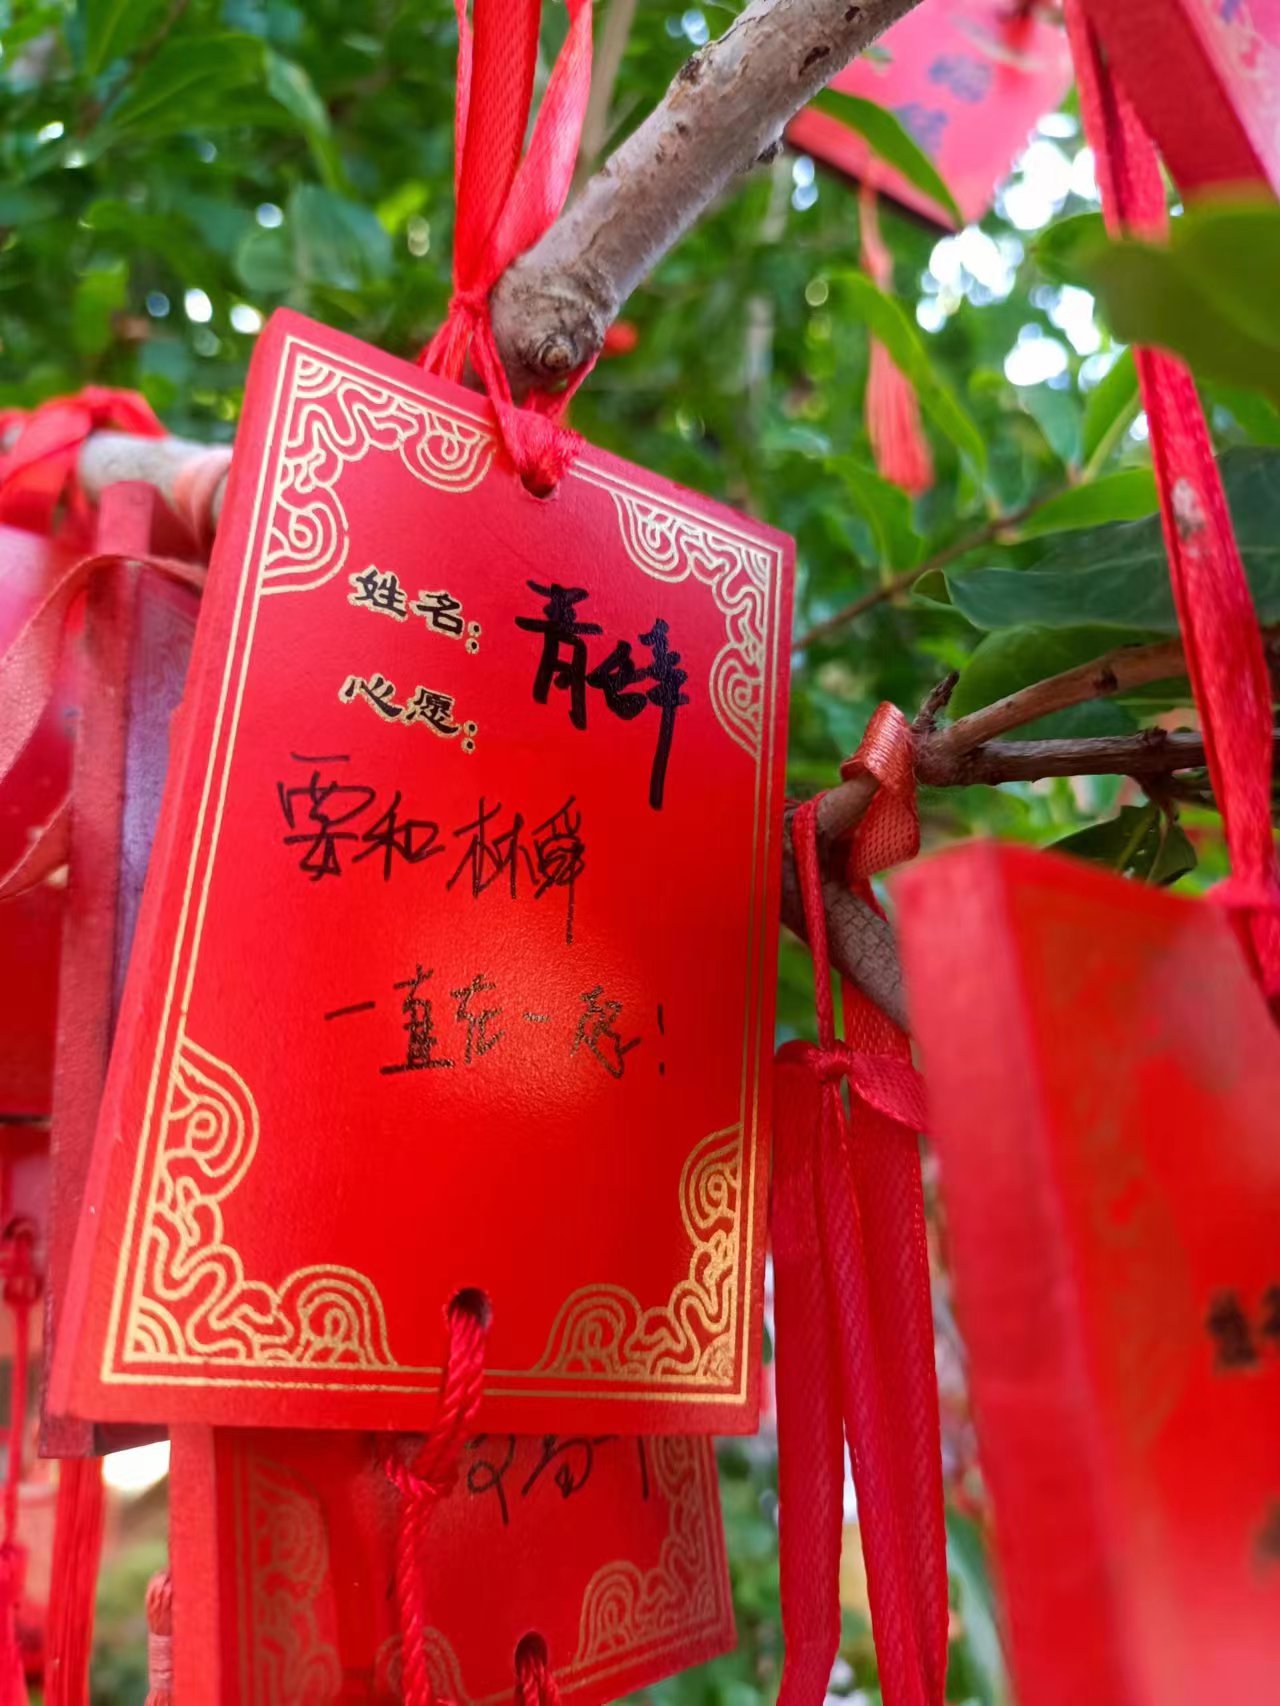 姓名：青蜂
心愿：
要和林舜
一直在一起！